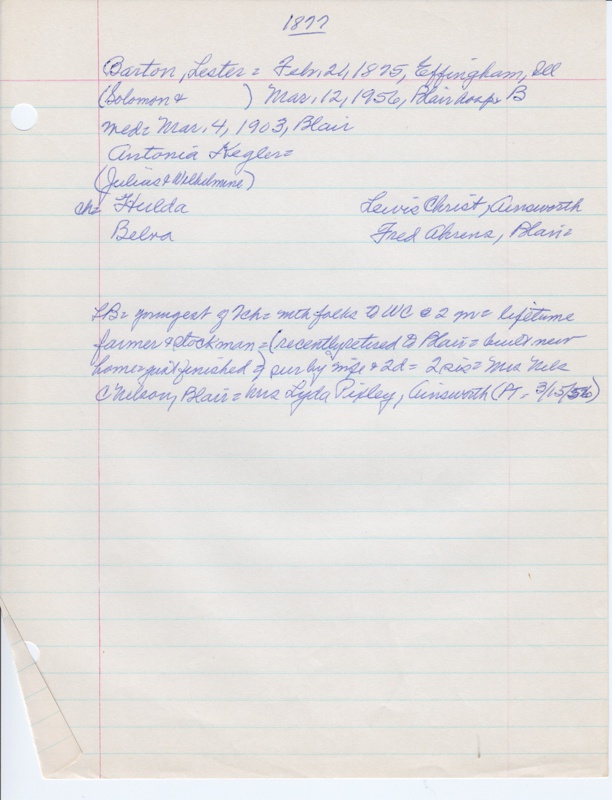 1877
Barton, Lester = Feb. 21, 1875, Effingham, Ill
(Solomon & ) Mar. 12, 1956, Blair hosp = B
med = Mar. 4, 1903, Blair
Antonia Kegler =
(Julius & Wilhelmine)
ch = Hulda Lewis Christ, Ainsworth
Belva Fred Ahrens, Blair =
LB = youngest of 7ch = mth folks to WC @ 2 m = lifetime
farmer & stockman = (recently retired to Blair = built new
home = just finished =) sur by wife & 2d = 2 sis = Mrs Nels
C Nelson, Blair = Mrs Lyda Pixley, Ainsworth (PT - 3/15/56)